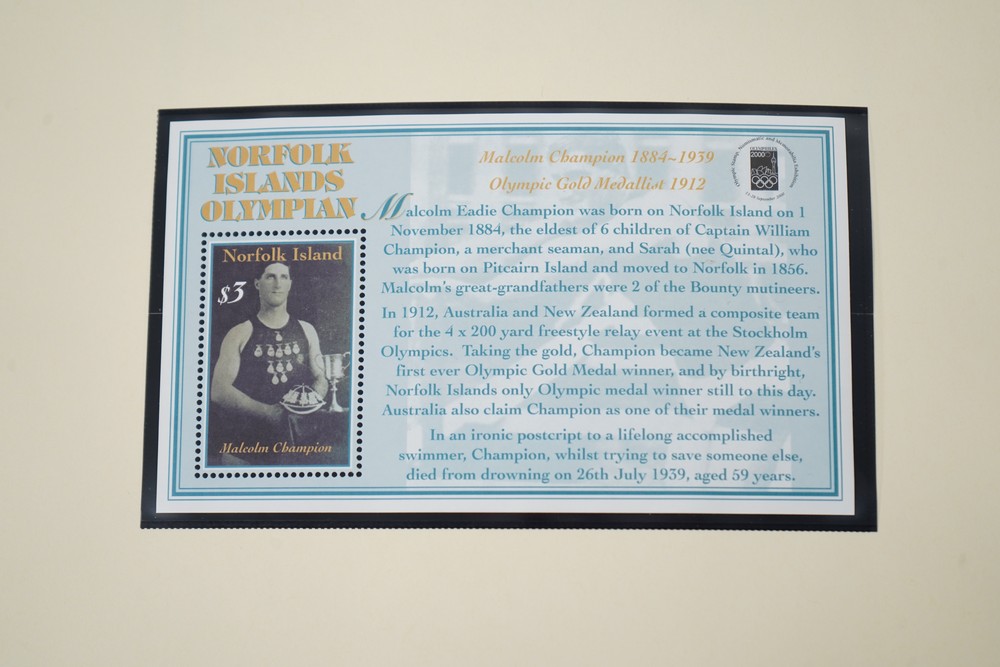 NORFOLK
ISLANDS
OLYMPIAN
Norfolk Island
$3
Malcolm Champion
Malcolm Champion 1884~1939
Olympic Gold Medallist 1912
Olympic Stamp, Numismatic and Memorabilia Exhibition
OLYMPHILEX
2000
Malcolm Eadie Champion was born on Norfolk Island on 1
November 1884, the eldest of 6 children of Captain William
Champion, a merchant seaman, and Sarah (nee Quintal), who
was born on Pitcairn Island and moved to Norfolk in 1856.
Malcolm's great-grandfathers were 2 of the Bounty mutineers.
In 1912, Australia and New Zealand formed a composite team
for the 4 x 200 yard freestyle relay event at the Stockholm
Olympics. Taking the gold, Champion became New Zealand's
first ever Olympic Gold Medal winner, and by birthright,
Norfolk Islands only Olympic medal winner still to this day.
Australia also claim Champion as one of their medal winners.
In an ironic postcript to a lifelong accomplished
swimmer, Champion, whilst trying to save someone else,
died from drowning on 26th July 1939, aged 59 years.